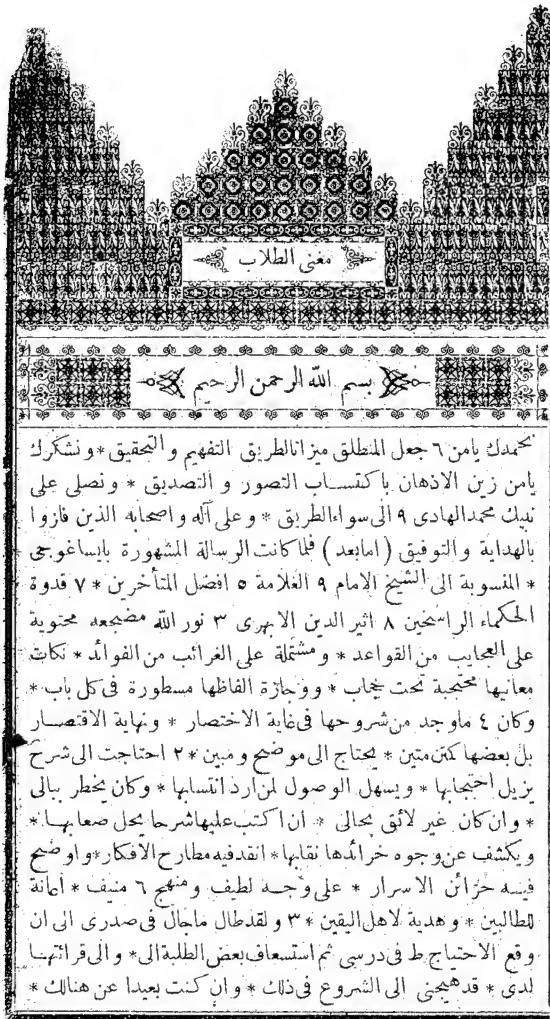 مغنى الطلاب
بسم الله الرحمن الرحيم
نحمدك يامن ٦ جعل المنطلق ميزانالطريق التفهيم والتحقيق * ونشكرك
يامن زين الاذهان باكتساب التصور و التصديق * ونصلى على
نبيك محمدالهادى ٩ الى سواءالطريق * وعلى آله واصحابه الذين فازوا
بالهداية والتوفيق ( امابعد ) فلما كانت الرسالة المشهورة بايساغوجى
* المنسوبة الى الشيخ الامام ٩ العلامة ٥ افضل المتأخرين * ٧ قدوة
الحكماء الراسخين ٨ اثير الدين الابهرى ٣ نور الله مضجعه محتوية
على العجايب من القواعد * ومشتملة على الغرائب من الفوائد * نكات
معانيها محتجبة تحت حجاب * ووجازة الفاظها مسطورة فى كل باب *
وكان ٤ ماوجد من شروحها فى غاية الاختصار * ونهاية الاقتصار
بل بعضها كمتن متين * يحتاج الى موضح ومبين * ٢ احتاجت الى شرح
يزيل احتجابها * ويسهل الوصول لمن اراد انتسابها * وكان يخطر ببالى
* وان كان غير لائق بحالى * ان اكتب عليها شرحا يحل صعابها *
ويكشف عن وجوه خرائدها نقابها * انقدفيه مطارح الافكار * واوضح
فيه خزائن الاسرار * على وجه لطيف ومنهج ٦ منيف * اعانة
للطالبين * وهدية لاهل اليقين * ٣ ولقدطال ماجال فى صدرى الى ان
وقع الاحتياج ط فى درسى ثم استسعاف بعض الطلبة الى * و الى قرائتها
لدى * قد هيجنى الى الشروع فى ذلك * وان كنت بعيدا عن هنالك *